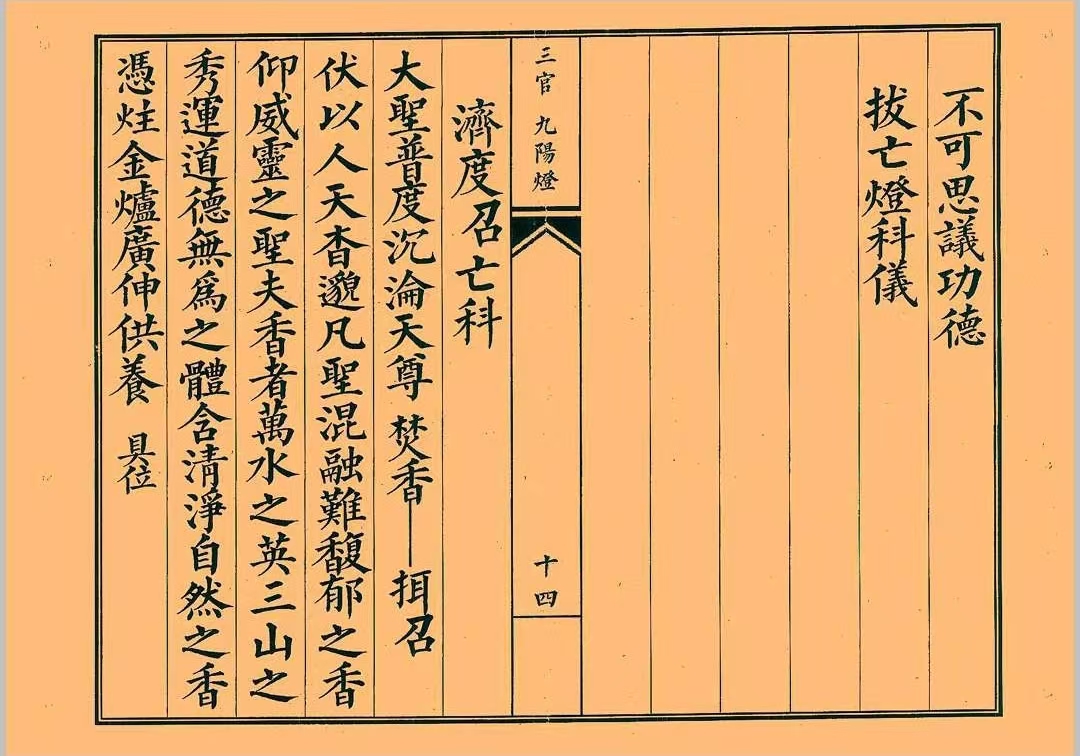 不可思議功德
拔亡燈科儀
三官 九陽燈
十四
濟度召亡科
大聖普度沉淪天尊 焚香——挕召
伏以人天杳邈凡聖混融難馥郁之香
仰威靈之聖夫香者萬水之英三山之
秀運道德無為之體含清淨自然之香
憑炷金爐廣伸供養 具位